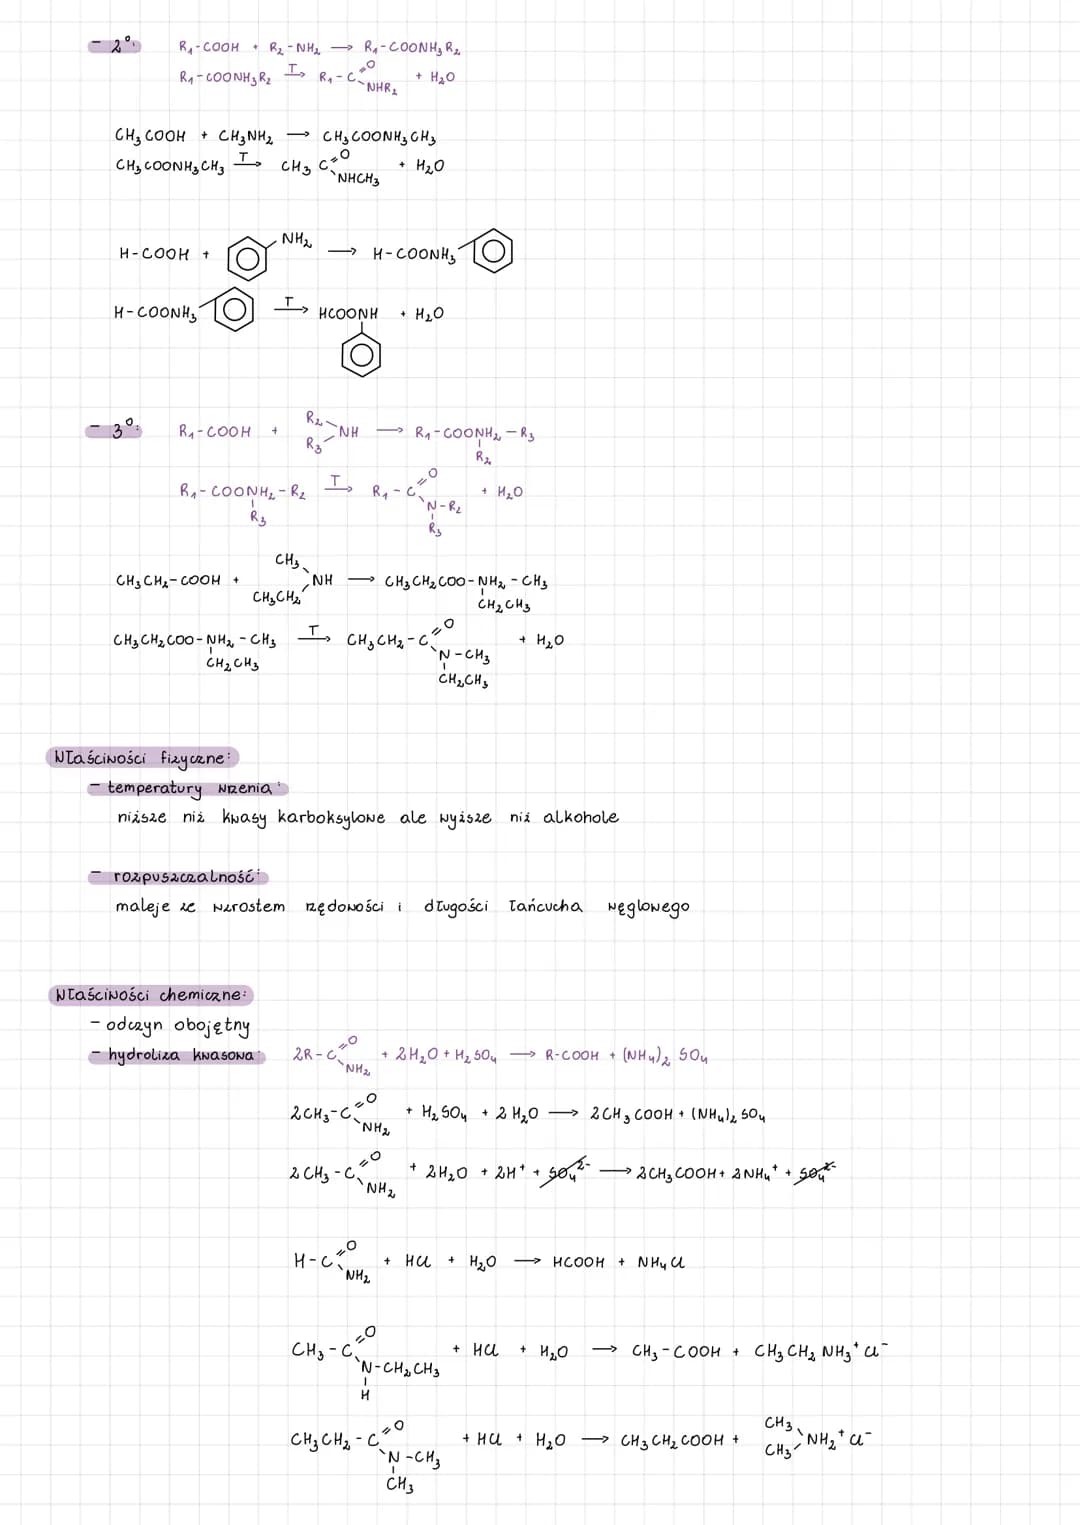 - 2°: R₁-COOH + R₂-NH₂ → R₁-COONH₃R₂
R₁-COONH₃R₂ T→ R₁-C=O NHR₂ + H₂O
CH₃COOH + CH₃NH₂ → CH₃COONH₃CH₃
CH₃COONH₃CH₃ T→ CH₃C=O NHCH₃ + H₂O
H-COOH + NH₂ → H-COONH₃
H-COONH₃ T→ HCOONH + H₂O
- 3°: R₁-COOH + R₂ R₃ NH → R₁-COONH₂-R₃ R₂
R₁-COONH₂-R₂ R₃ T→ R₁-C=O N-R₂ R₃ + H₂O
CH₃CH₂-COOH + CH₃ CH₃CH₂ NH → CH₃CH₂COO-NH₂-CH₃ CH₂CH₃
CH₃CH₂COO-NH₂-CH₃ CH₂CH₃ T→ CH₃CH₂-C=O N-CH₃ CH₂CH₃ + H₂O
Właściwości fizyczne:
- temperatury wrzenia:
niższe niż kwasy karboksylowe ale wyższe niż alkohole
- rozpuszczalność:
maleje ze wzrostem rzędowości i długości łańcucha węglowego
Właściwości chemiczne:
- odczyn obojętny
- hydroliza kwasowa: 2R-C=O NH₂ + 2H₂O + H₂SO₄ → R-COOH + (NH₄)₂SO₄
2CH₃-C=O NH₂ + H₂SO₄ + 2H₂O → 2CH₃COOH + (NH₄)₂SO₄
2CH₃-C=O NH₂ + 2H₂O + 2H⁺ + SO₄²⁻ → 2CH₃COOH + 2NH₄⁺ + SO₄²⁻
H-C=O NH₂ + HCl + H₂O → HCOOH + NH₄Cl
CH₃-C=O N-CH₂CH₃ H + HCl + H₂O → CH₃-COOH + CH₃CH₂NH₃⁺Cl⁻
CH₃CH₂-C=O N-CH₃ CH₃ + HCl + H₂O → CH₃CH₂COOH + CH₃ CH₃ NH₂⁺Cl⁻